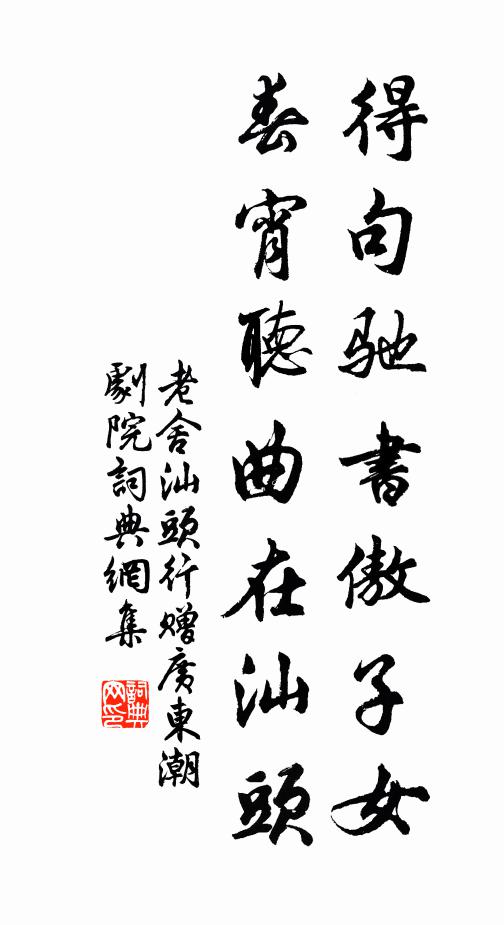 得句馳書傲子女
春宵聽曲在汕頭
老舍汕頭行贈廣東潮
劇院詞典網集
詞典
网印